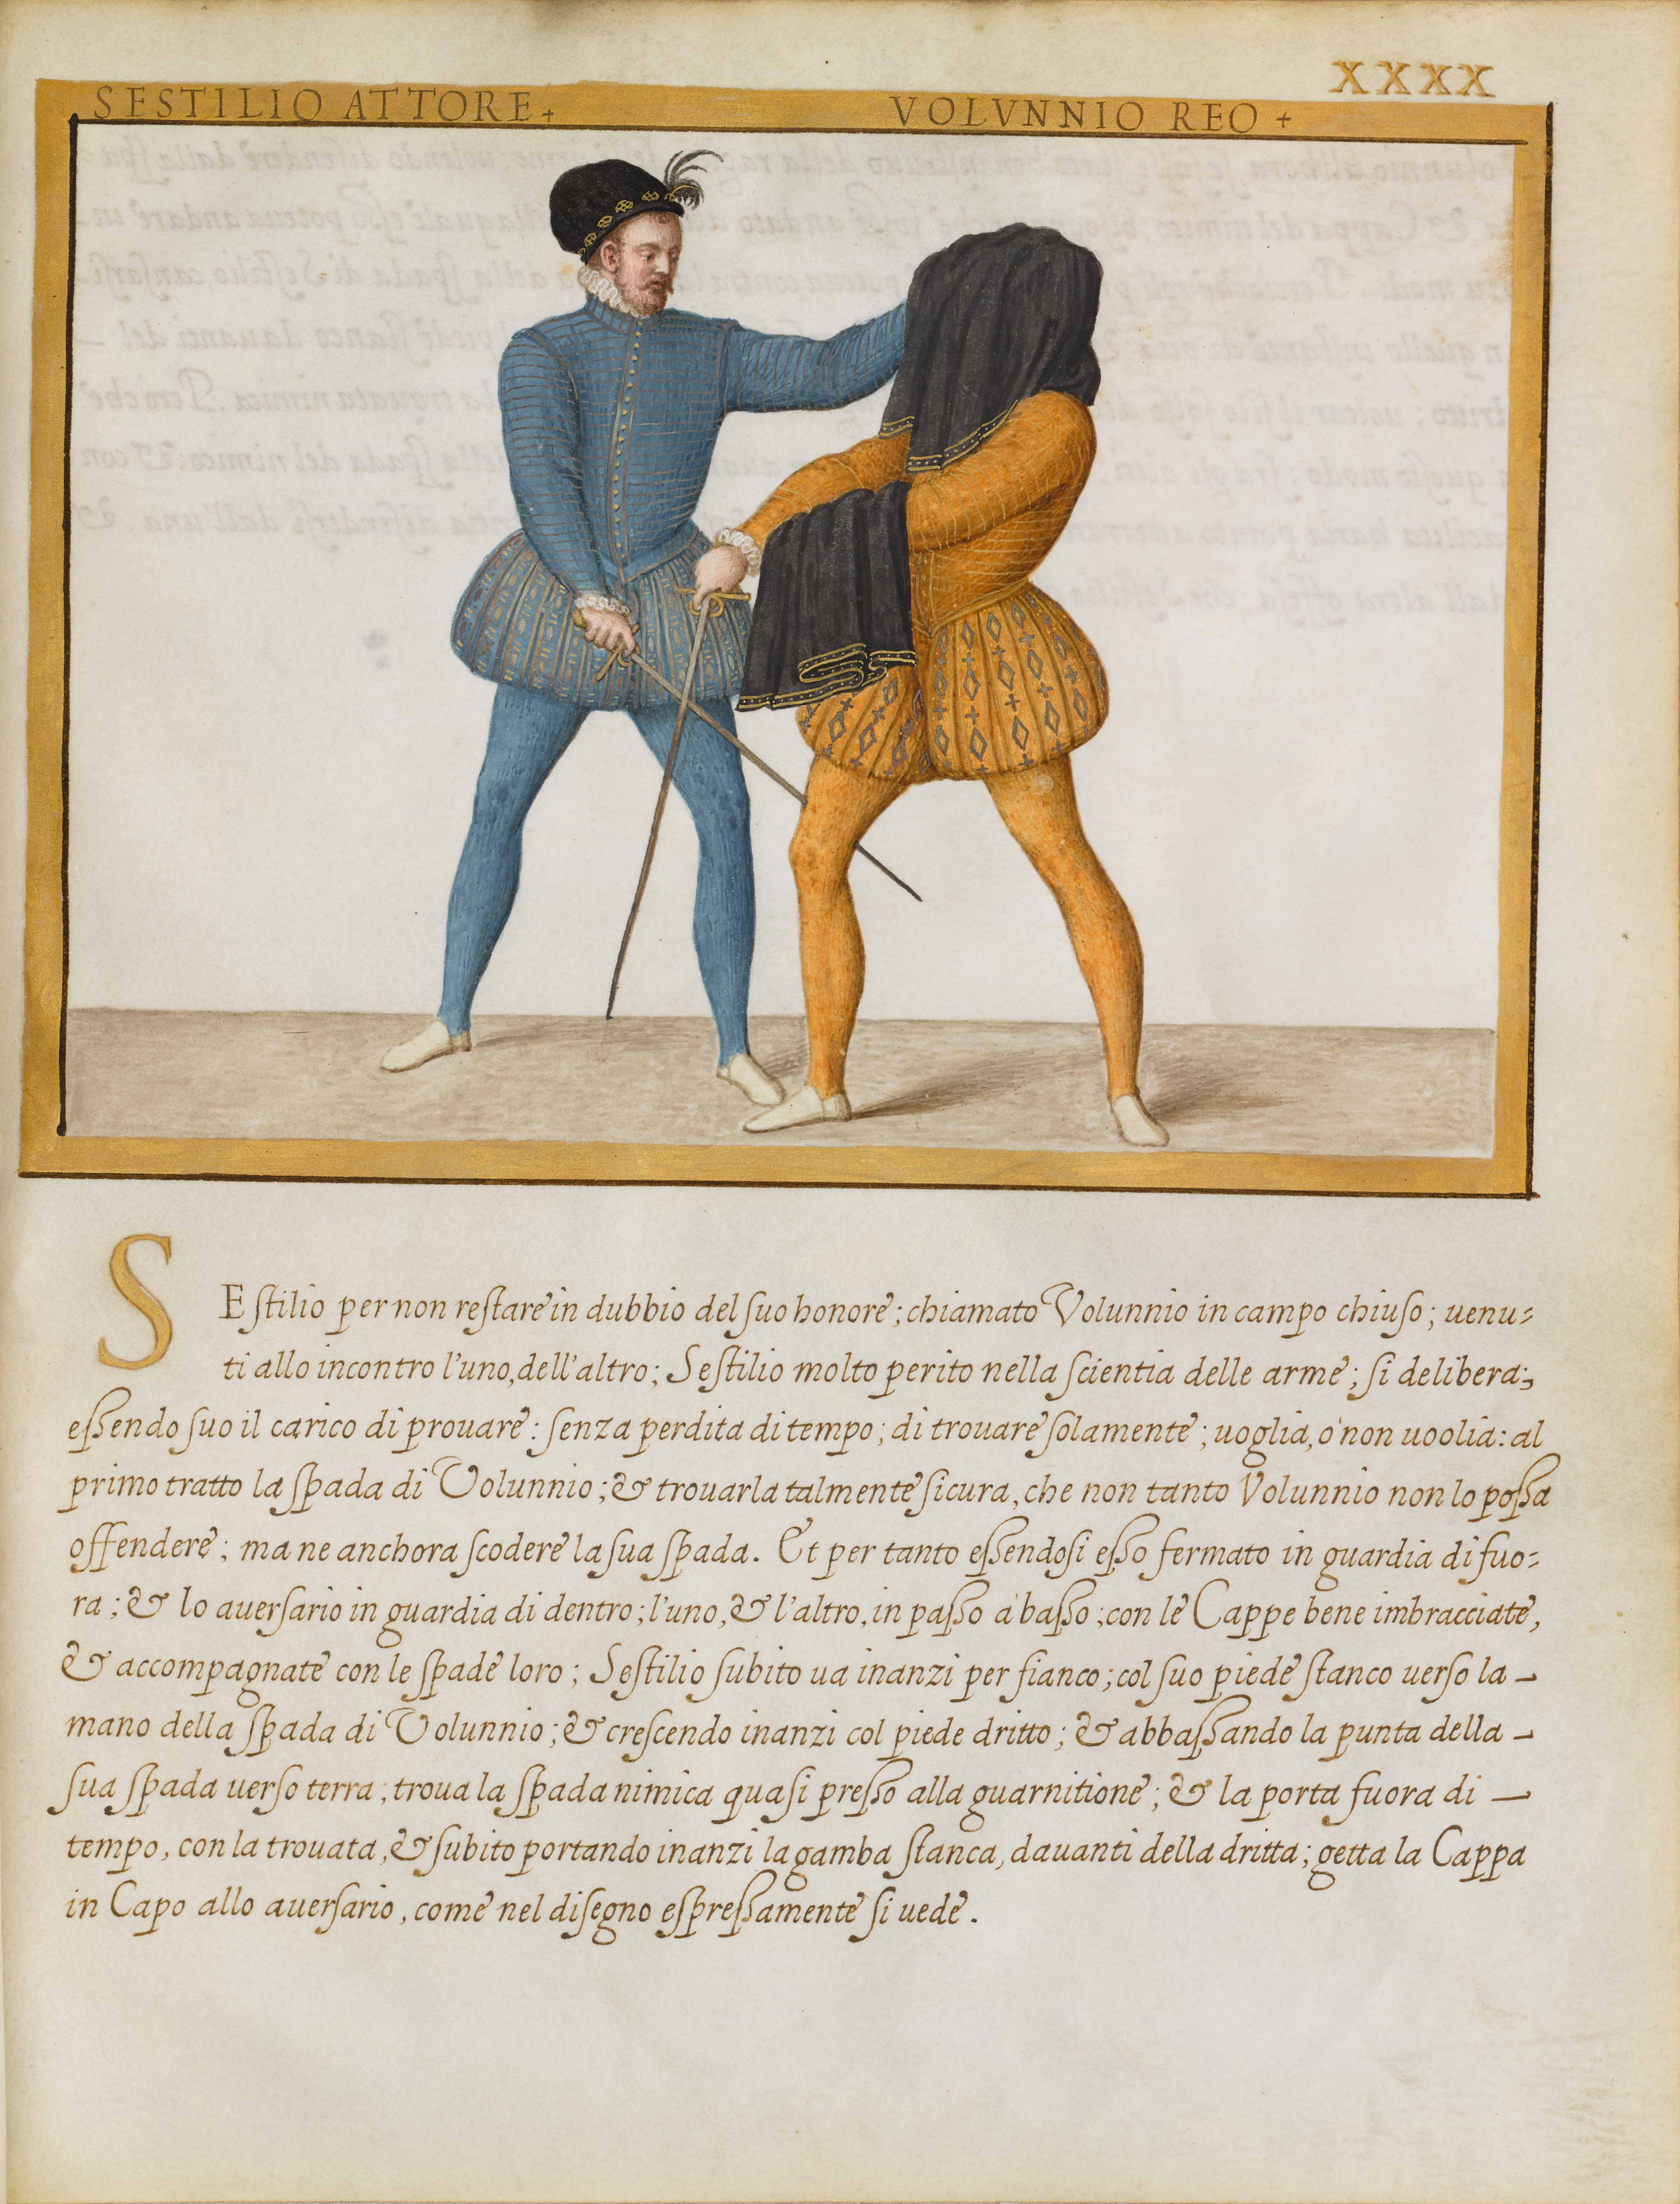 XXXX
SESTILIO ATTORE+
VOLVNNIO REO +
SEstilio per non restare in dubbio del suo honore; chiamato Volunnio in campo chiuso; uenu=
ti allo incontro l'uno, dell'altro; Sestilio molto perito nella scientia delle arme; si delibera;
essendo suo il carico di prouare: senza perdita di tempo; di trouare solamente; uoglia, ò non uoolia: al
primo tratto la spada di Volunnio; & trouarla talmente sicura, che non tanto Volunnio non lo possa
offendere; ma ne anchora scodere la sua spada. Et per tanto essendosi esso fermato in guardia di fuo=
ra; & lo auersario in guardia di dentro; l'uno, & l'altro, in passo à basso; con le Cappe bene imbracciate,
& accompagnate con le spade loro; Sestilio subito ua inanzi per fianco; col suo piede stanco uerso la –
mano della spada di Volunnio; & crescendo inanzi col piede dritto; & abbassando la punta della –
sua spada uerso terra; troua la spada nimica quasi presso alla guarnitione; & la porta fuora di –
tempo, con la trouata, & subito portando inanzi la gamba stanca, dauanti della dritta; getta la Cappa
in Capo allo auersario, come nel disegno espressamente si uede.